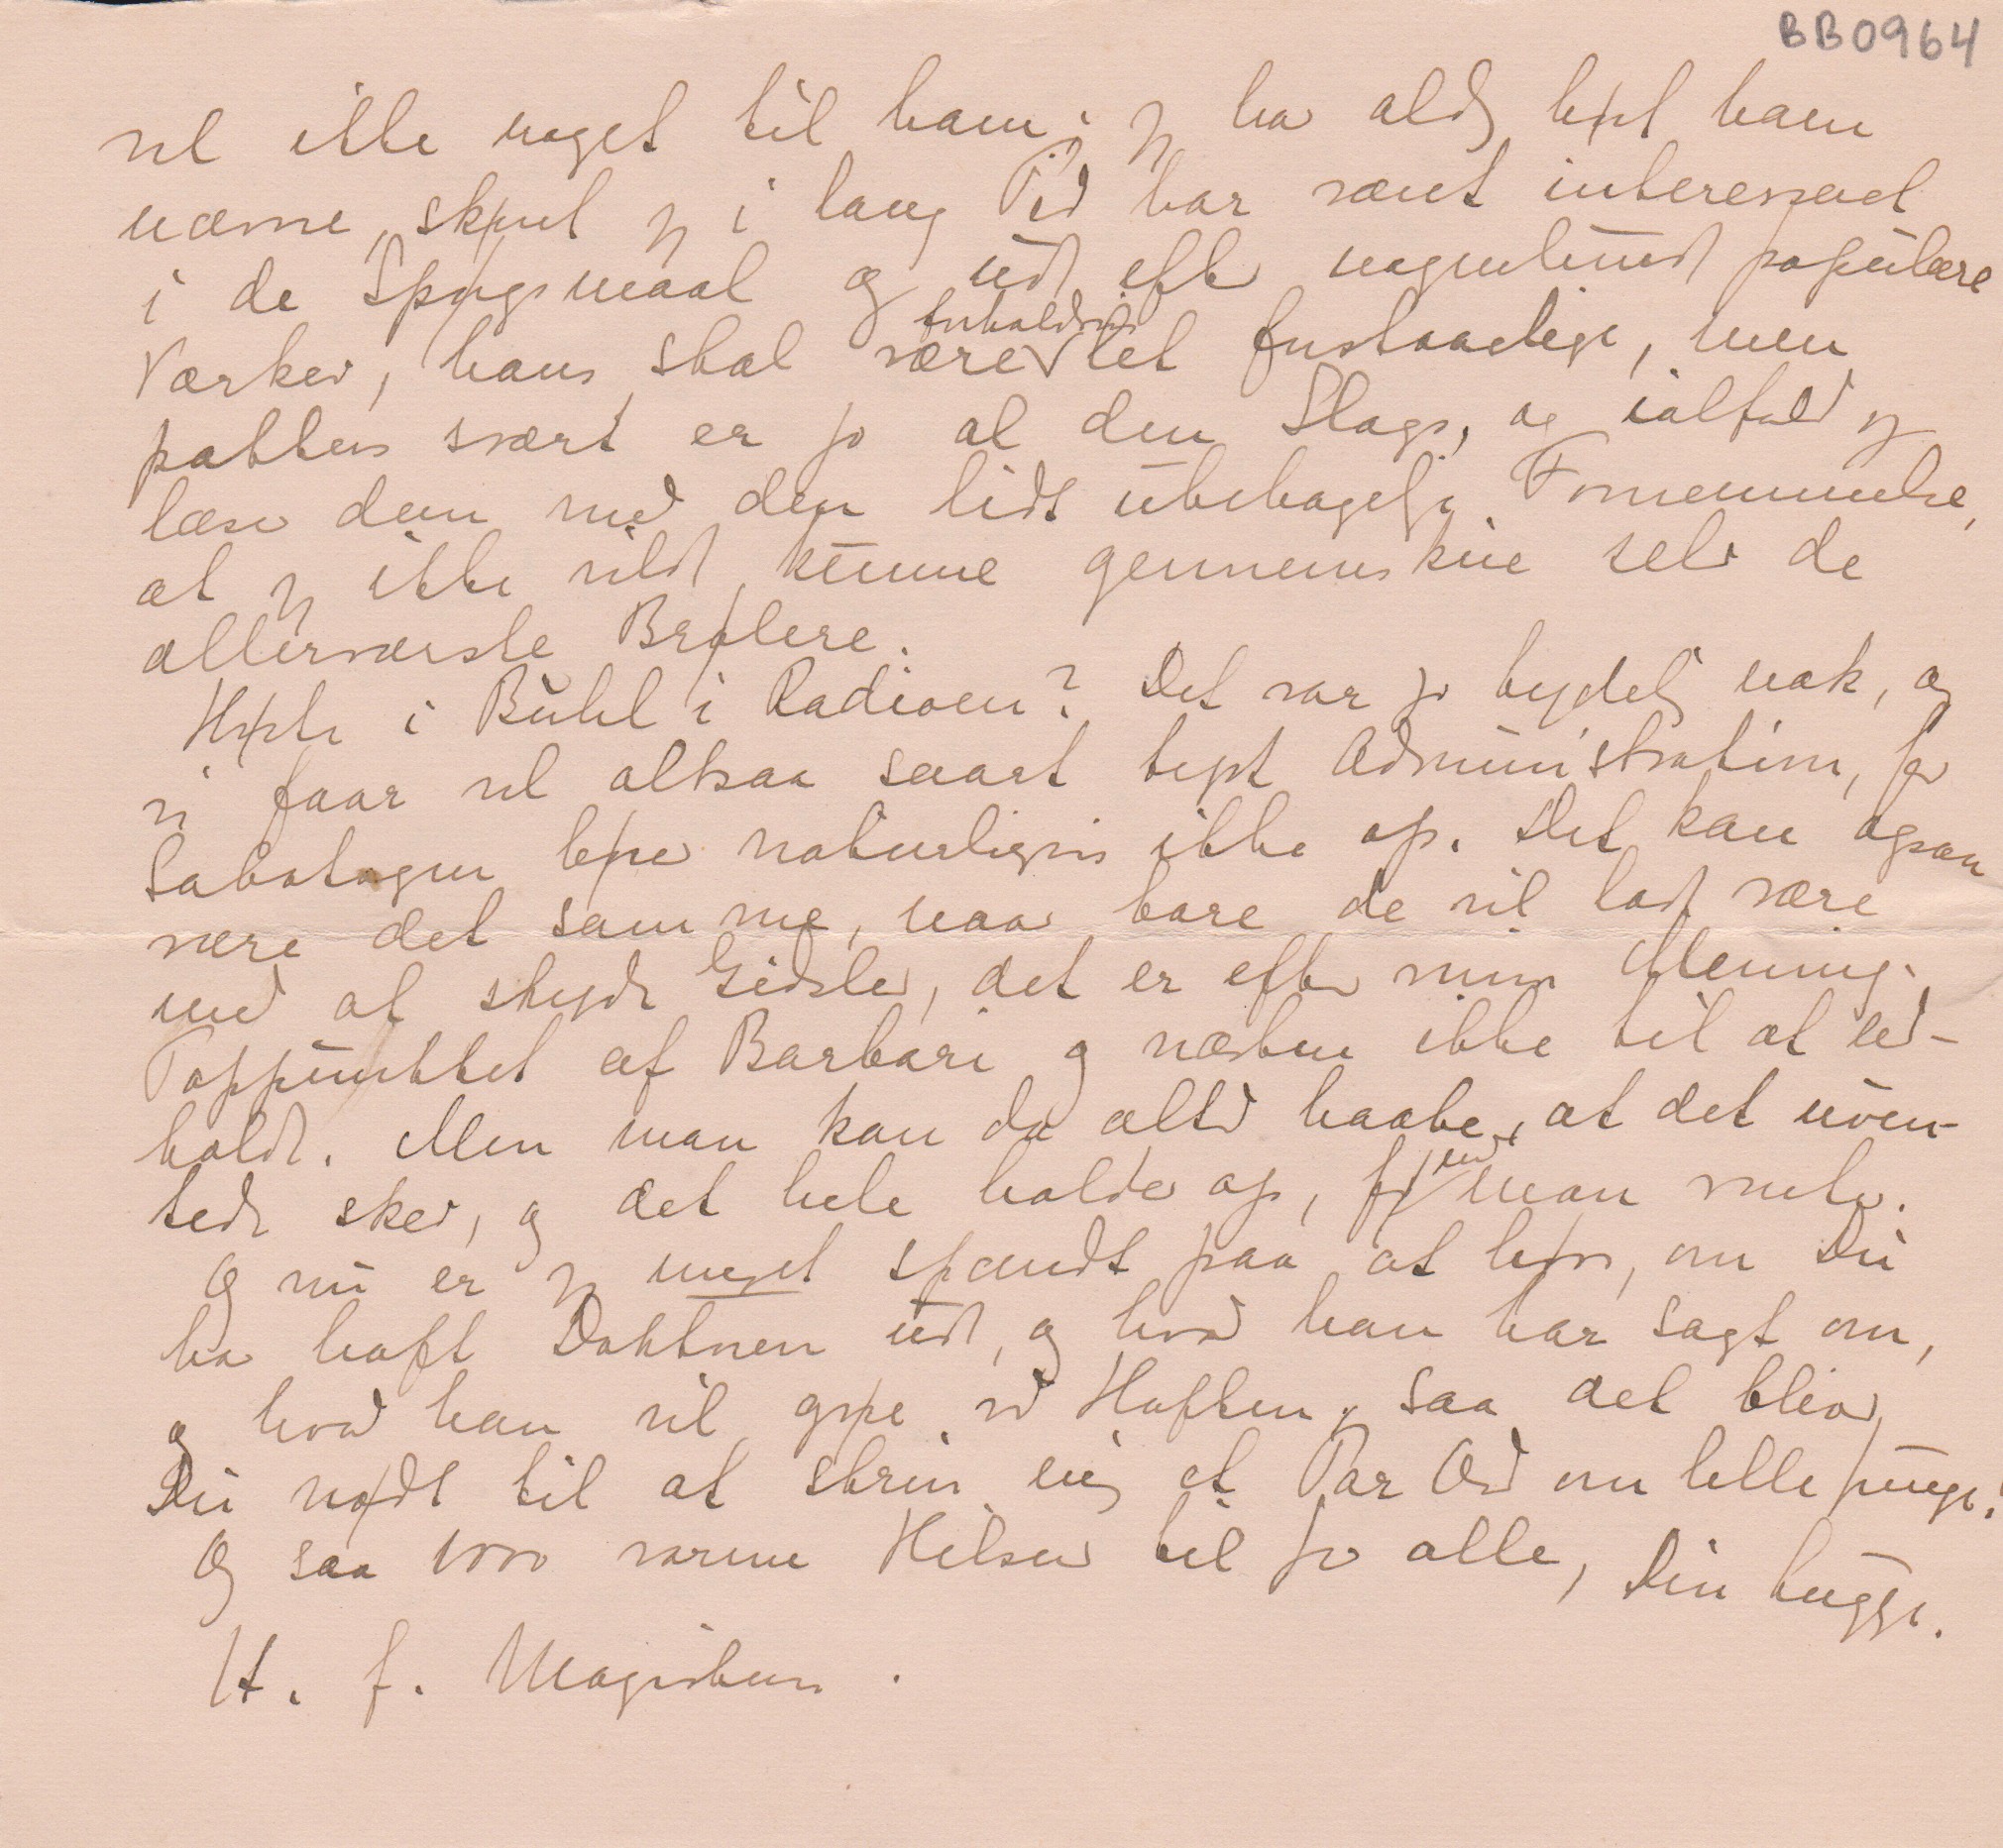 BB0964
vel ikke noget til ham; jeg har aldrig hørt ham
nævne, skønt jeg i lang Tid har været interesseret
i de Spørgsmaal og ude efter nogenlunde populære
Værker, hans skal være forholdsvis let forstaaelige, men
pokkers svært er jo al den Slags, og ialfald jeg
læser dem med den lidt ubehagelige Fornemmelse,
at jeg ikke vilde kunne gennemskue selv de
allerværste Brølere.
Hørte i Buhl i Radioen? Det var jo tydelig nok, og
vi faar vel altsaa snart tysk Administration, for
Sabotagen hører naturligvis ikke op. Det kan ogsaa
være det samme, naar bare de vil lade være
med at skyde Gidsler, det er efter min Mening
Toppunktet af Barbari og næsten ikke til at ud-
holde. Men man kan da altid haabe, at det uven-
tede sker, og det hele holder op, før end man venter.
Og nu er jeg meget spændt paa at høre, om Du
har haft Doktoren ude, og hvad han har sagt om,
og hvad han vil gøre ved Hoften, saa det bliver
Du nødt til at skrive mig et Par Ord om lille Junge!
Og saa 1000 varme Hilsener til Jer alle, Din hugge.
H. f. Magisteren.